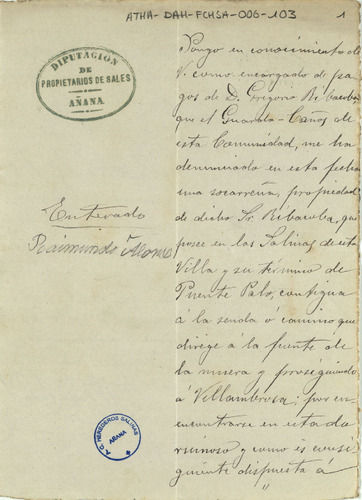 ATHA-DAH-FCHSA-006-103
1
DIPUTACION
DE
PROPIETARIOS DE SALES
AÑANA.
Enterado
Raimundo Alonso
A.G. HEREDEROS SALINAS
AÑANA
Pongo en conocimiento de
V. como encargado de
de D. Gregorio Ribacoba
que el Guarda-Caños de
esta Comunidad, me ha
denunciado en esta fecha
una socarreña, propiedad
de dicho Sr. Ribacoba, que
posee en las Salinas de esta
Villa y su término de
Puente Palo, contigua
á la senda ó camino que
dirige á la fuente de
la muera y prosiguiendo
á Villambrosa; por en-
encontrarse en estado
ruinoso y como es consi-
guiente dispuesta á